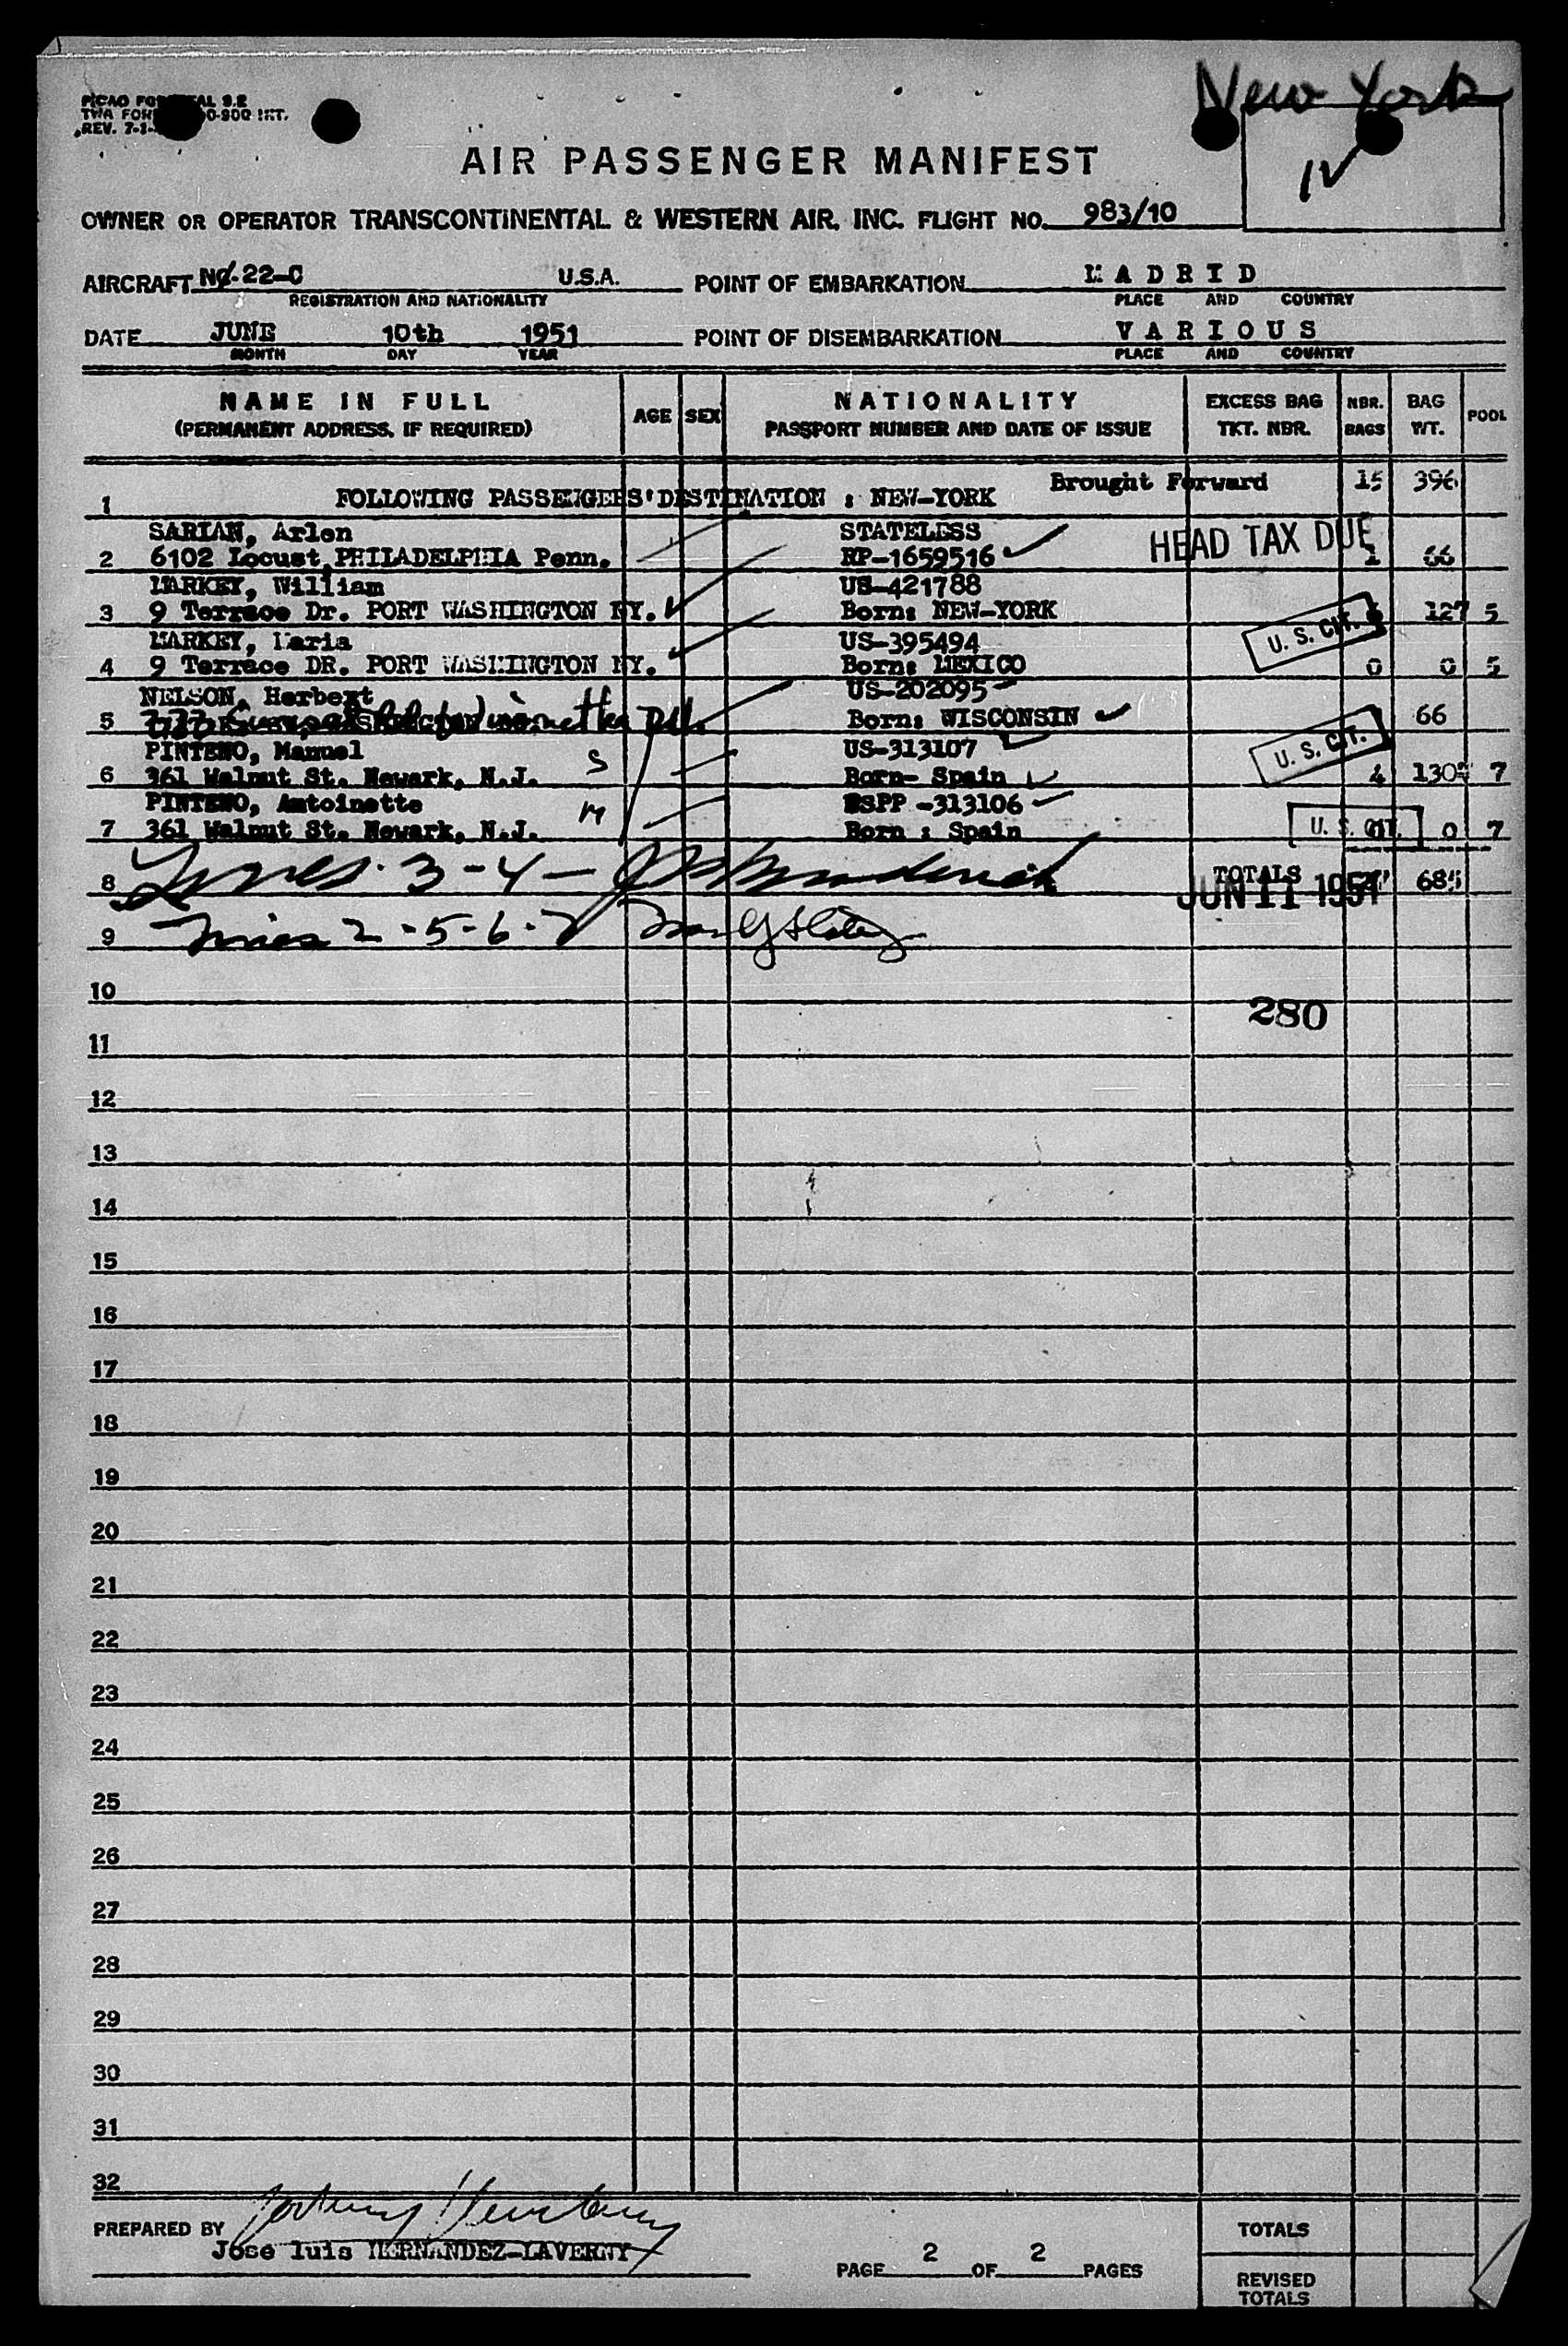 New York
PICAO FO AL 9.2
TWA FOR 0-900 INT.
REV. 7-1-
AIR PASSENGER MANIFEST
OWNER OR OPERATOR TRANSCONTINENTAL & WESTERN AIR, INC. FLIGHT NO. 983/10
AIRCRAFT NO. 22-C U.S.A. POINT OF EMBARKATION MADRID
REGISTRATION AND NATIONALITY PLACE AND COUNTRY
DATE JUNE 10th 1951 POINT OF DISEMBARKATION VARIOUS
MONTH DAY YEAR PLACE AND COUNTRY
NAME IN FULL AGE SEX NATIONALITY EXCESS BAG NBR. BAG POOL
(PERMANENT ADDRESS, IF REQUIRED) PASSPORT NUMBER AND DATE OF ISSUE TKT. NBR. BAGS WT.
Brought Forward 15 396
1 FOLLOWING PASSENGERS' DESTINATION : NEW-YORK
SARIAN, Arlen STATELESS HEAD TAX DUE
2 6102 Locust, PHILADELPHIA Penn. RP-1659516 1 66
MARKEY, William US-421788
3 9 Terrace Dr. PORT WASHINGTON NY. Born: NEW-YORK U. S. CIT. 127 5
MARKEY, Maria US-395494
4 9 Terrace DR. PORT WASHINGTON NY. Born: MEXICO 0 0 5
NELSON, Herbert US-202095
5 Winnetka Ill. Born: WISCONSIN 66
PINTENO, Manuel US-313107 U. S. CIT.
6 361 Walnut St. Newark, N.J. S Born- Spain 4 130 7
PINTENO, Antoinette USPP -313106
7 361 Walnut St. Newark, N.J. M Born : Spain U. S. CIT. 0 7
8 Lines 3-4- TOTALS 685
JUN 11 1951
9 Lines 2-5-6-7
10 280
11
12
13
14
15
16
17
18
19
20
21
22
23
24
25
26
27
28
29
30
31
32
PREPARED BY TOTALS
Jose luis HERNANDEZ-LAVERNY PAGE 2 OF 2 PAGES
REVISED
TOTALS